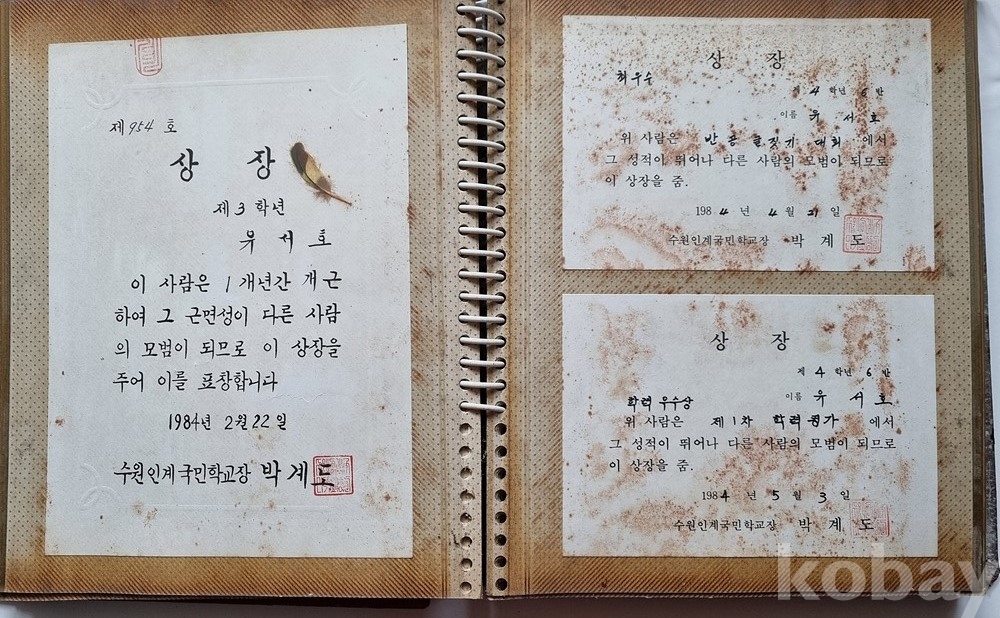 제 954 호
상 장
제 3 학년
유 서 호
이 사람은 1 개년간 개근
하여 그 근면성이 다른 사람
의 모범이 되므로 이 상장을
주어 이를 표창합니다
1984년 2월 22일
수원인계국민학교장 박계도
상 장
최우수
제 4 학년 6 반
이름 유 서 호
위 사람은 반공 글짓기 대회 에서
그 성적이 뛰어나 다른 사람의 모범이 되므로
이 상장을 줌.
1984 년 4 월 21 일
수원인계국민학교장 박 계 도
상 장
제 4 학년 6 반
이름 유 서 호
학력 우수상
위 사람은 제 1 차 학력평가 에서
그 성적이 뛰어나 다른 사람의 모범이 되므로
이 상장을 줌.
1984 년 5 월 3 일
수원인계국민학교장 박 계 도
kobay